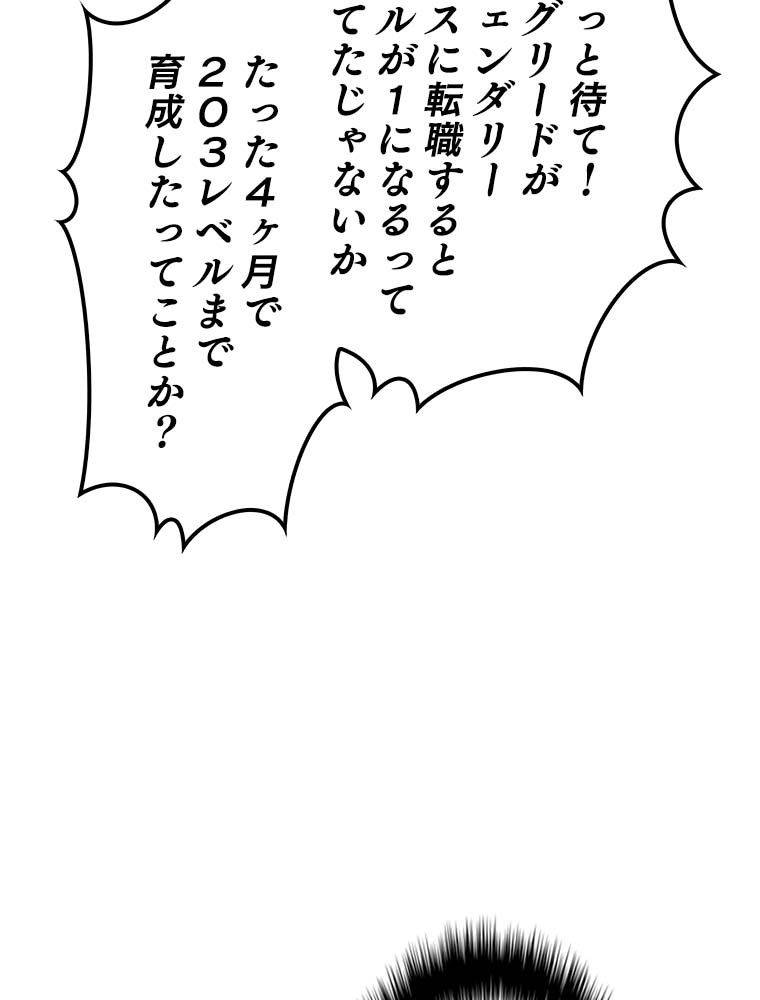 っと待て！
グリードが
ェンダリー
スに転職すると
ルが１になるって
てたじゃないか
たった４ヶ月で
２０３レベルまで
育成したってことか？